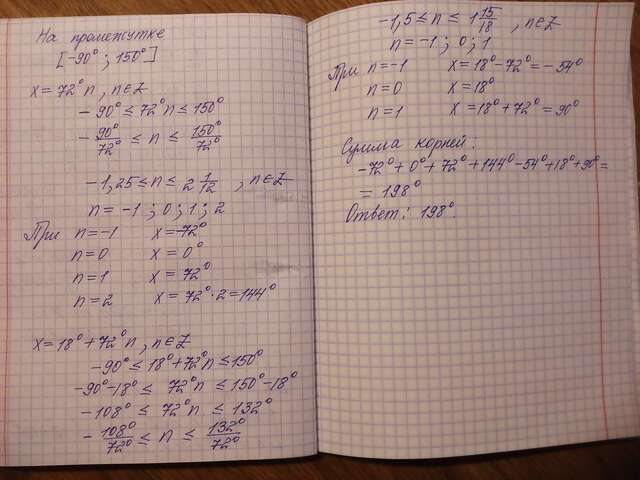 На промежутке
[-90°; 150°]
x = 72°n, n∈Z
-90° ≤ 72°n ≤ 150°
-90°/72° ≤ n ≤ 150°/72°
-1,25 ≤ n ≤ 2 1/12, n∈Z
n = -1; 0; 1; 2
При n=-1 x=-72°
n=0 x=0°
n=1 x=72°
n=2 x=72°·2=144°
x=18°+72°n, n∈Z
-90° ≤ 18°+72°n ≤ 150°
-90°-18° ≤ 72°n ≤ 150°-18°
-108° ≤ 72°n ≤ 132°
-108°/72° ≤ n ≤ 132°/72°
-1,5 ≤ n ≤ 1 15/18, n∈Z
n = -1; 0; 1
При n=-1 x=18°-72°=-54°
n=0 x=18°
n=1 x=18°+72°=90°
Сумма корней:
-72°+0°+72°+144°-54°+18°+90°=
= 198°
Ответ: 198°.